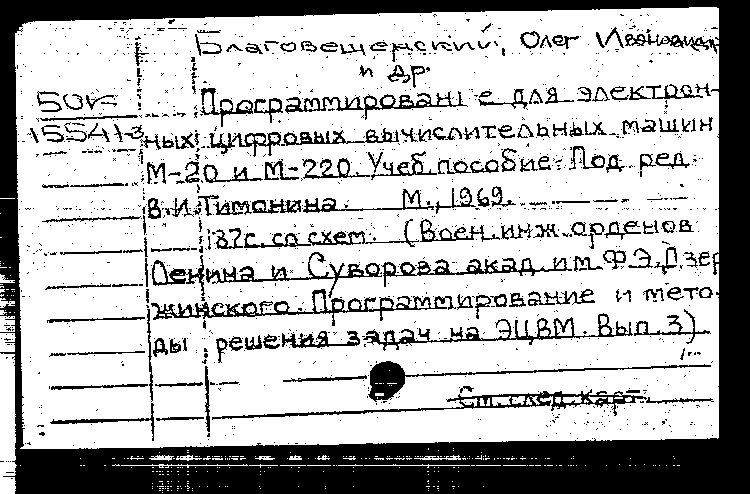 Благовещенский, Олег Иванович
и др.
50к
15541-3
Программирование для электрон-
ных цифровых вычислительных машин
М-20 и М-220. Учеб. пособие. Под ред.
В.И. Тимонина. М., 1969.
187с. со схем. (Воен. инж. орденов
Ленина и Суворова акад. им. Ф.Э. Дзер
жинского. Программирование и мето-
ды решения задач на ЭЦВМ. Вып. 3)
См. след. карт.